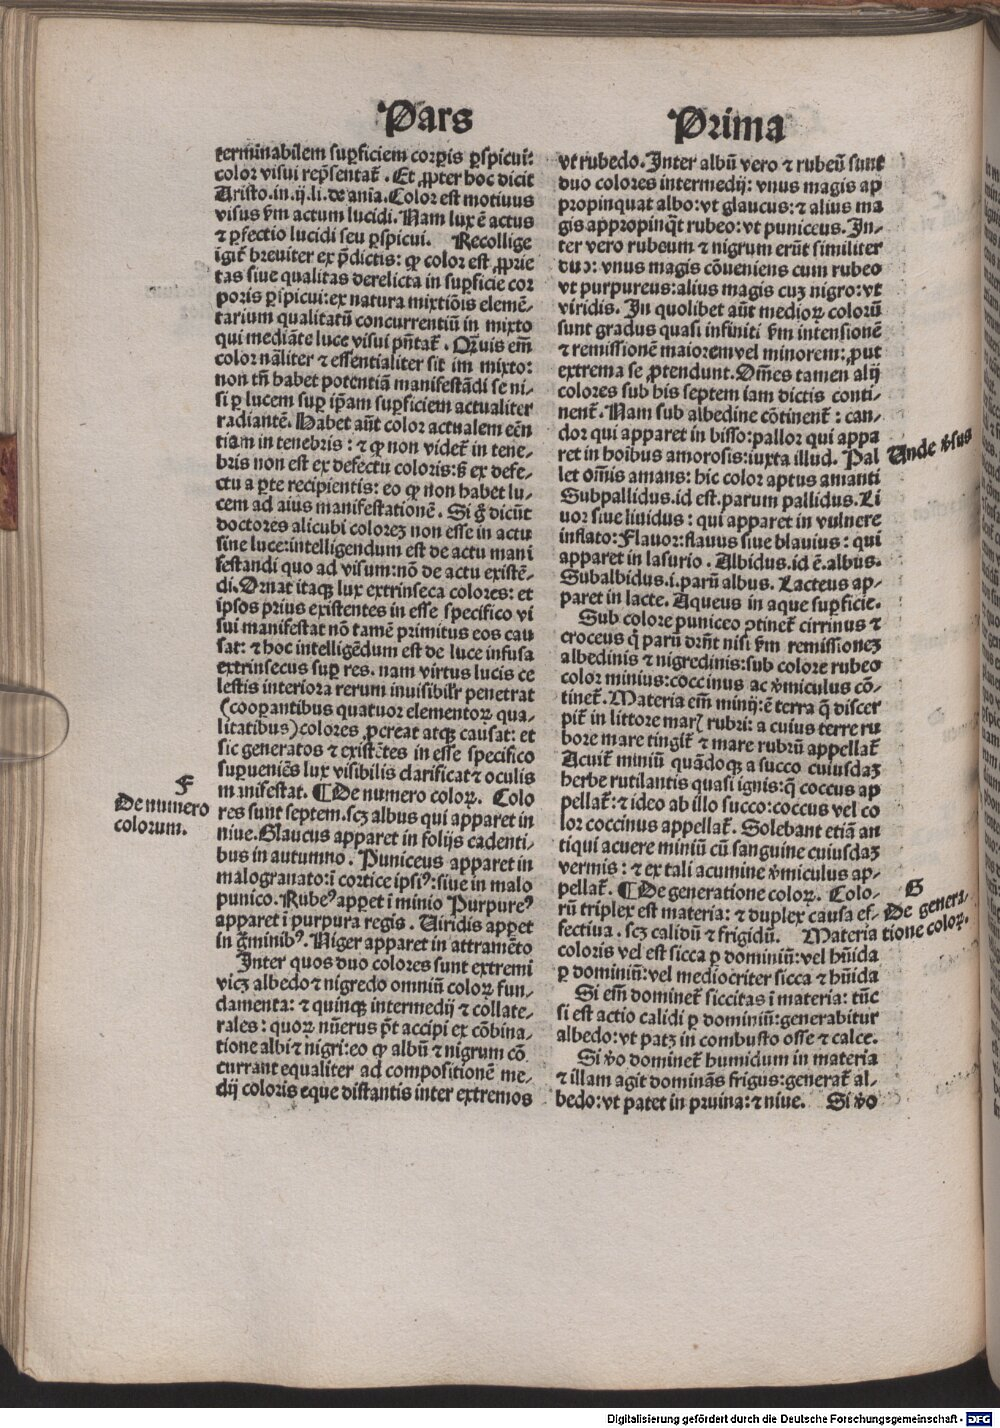 Pars Prima
terminabilem suꝑficiem corꝑis ꝑspicui:
color visui rep̃sentat᷑. Et ꝓpter hoc dicit
Aristo.in.ij.li.de aĩa.Color est motiuus
visus ẜm actum lucidi. Nam lux ẽ actus
⁊ ꝑfectio lucidi seu ꝑspicui. Recollige
igit᷑ breuiter ex p̃dictis: ꝙ color est ꝓprie
tas siue qualitas derelicta in suꝑficie cor
poris ꝑspicui:ex natura mixtiõis elemẽ-
tarium qualitatũ concurrentiũ in mixto
qui mediãte luce visui pñtat᷑. Qꝫuis em̃
color nãliter ⁊ essentialiter sit im mixto:
non tñ habet potentiã manifestãdi se ni-
si ꝑ lucem suꝑ ip̃am suꝑficiem actualiter
radiantẽ. Habet aũt color actualem eẽn
tiam in tenebris: ⁊ ꝙ non videt᷑ in tene-
bris non est ex defectu coloris:ẜ ex defe-
ctu a ꝑte recipientis: eo ꝙ non habet lu-
cem ad aius manifestationẽ. Si g̊ dicũt
doctores alicubi coloreꝫ non esse in actu
sine luce:intelligendum est de actu mani
festandi quo ad visum:nõ de actu existẽ-
di.Ornat itaqꝫ lux extrinseca colores: et
ipsos prius existentes in esse specifico vi
sui manifestat nõ tamẽ primitus eos cau
sat: ⁊ hoc intelligẽdum est de luce infusa
extrinsecus suꝑ res. nam virtus lucis ce
lestis interiora rerum inuisibilr̃ penetrat
(cooꝑantibus quatuor elementoꝝ qua-
litatibus)colores ꝓcreat atqꝫ causat: et
sic generatos ⁊ existẽtes in esse specifico
suꝑueniẽs lux visibilis clarificat ⁊ oculis
manifestat. ¶De numero coloꝝ. Colo
res sunt septem.scꝫ albus qui apparet in
niue.Glaucus apparet in folijs cadenti-
bus in autumno. Puniceus apparet in
malogranato:ĩ cortice ipsiꝰ:siue in malo
punico. Rubeꝰ apꝑet ĩ minio Purpureꝰ
apparet ĩ purpura regis. Viridis apꝑet
in g̃minibꝰ. Niger apparet in attramẽto
Inter quos duo colores sunt extremi
vicꝫ albedo ⁊ nigredo omniũ coloꝝ fun-
damenta: ⁊ quinqꝫ intermedij ⁊ collate-
rales: quoꝝ nũerus p̃t accipi ex cõbina-
tione albi ⁊ nigri:eo ꝙ albũ ⁊ nigrum cõ
currant equaliter ad compositionẽ me-
dij coloris eque distantis inter extremos
F
De numero
colorum.
vt rubedo.Inter albũ vero ⁊ rubeũ sunt
duo colores intermedij: vnus magis ap
propinquat albo:vt glaucus:⁊ alius ma
gis appropinq̃t rubeo: vt puniceus. In-
ter vero rubeum ⁊ nigrum erũt similiter
duo: vnus magis cõueniens cum rubeo
vt purpureus:alius magis cuꝫ nigro:vt
viridis. In quolibet aũt medioꝝ colorũ
sunt gradus quasi infiniti ẜm intensionẽ
⁊ remissionẽ maiorem vel minorem:ꝓut
extrema se ꝓtendunt.Om̃es tamen alij
colores sub his septem iam dictis conti-
nent᷑. Nam sub albedine cõtinent᷑: can-
dor qui apparet in bisso:pallor qui appa
ret in hoibus amorosis:iuxta illud. Pal
let om̃is amans: hic color aptus amanti
Subpallidus.id est.parum pallidus.Li
uor siue liuidus: qui apparet in vulnere
inflato:Flauor:flauus siue blauius: qui
apparet in lasurio. Albidus.id ẽ.albus.
Subalbidus.i.parũ albus. Lacteus ap-
paret in lacte. Aqueus in aque suꝑficie.
Sub colore puniceo ꝯtinet᷑ cirrinus ⁊
croceus q̃ parũ drñt nisi ẜm remissioneꝫ
albedinis ⁊ nigredinis:sub colore rubeo
color minius:coccinus ac v̾miculus cõ-
tinet᷑.Materia em̃ minij:ẽ terra q̃ discer
pit᷑ in littore marꝭ rubri: a cuius terre ru
bore mare tingit᷑ ⁊ mare rubrũ appellat᷑
Acuit᷑ miniũ quãdoqꝫ a succo cuiusdaꝫ
herbe rutilantis quasi ignis:q̃ coccus ap
pellat᷑:⁊ ideo ab illo succo:coccus vel co
lor coccinus appellat᷑. Solebant etiã an
tiqui acuere miniũ cũ sanguine cuiusdaꝫ
vermis: ⁊ ex tali acumine v̾miculus ap-
pellat᷑. ¶De generatione coloꝝ. Colo-
rũ triplex est materia: ⁊ duplex causa ef-
fectiua. scꝫ calidũ ⁊ frigidũ. Materia
coloris vel est sicca ꝑ dominiũ:vel hũida
ꝑ dominiũ:vel mediocriter sicca ⁊ hũida
Si em̃ dominet᷑ siccitas ĩ materia: tũc
si est actio calidi ꝑ dominiũ:generabitur
albedo:vt patꝫ in combusto osse ⁊ calce.
Si v̾o dominet᷑ humidum in materia
⁊ illam agit dominãs frigus:generat᷑ al-
bedo:vt patet in pruina:⁊ niue. Si v̾o
Unde v̾sus
G
De genera-
tione coloꝝ.
Digitalisierung gefördert durch die Deutsche Forschungsgemeinschaft - DFG